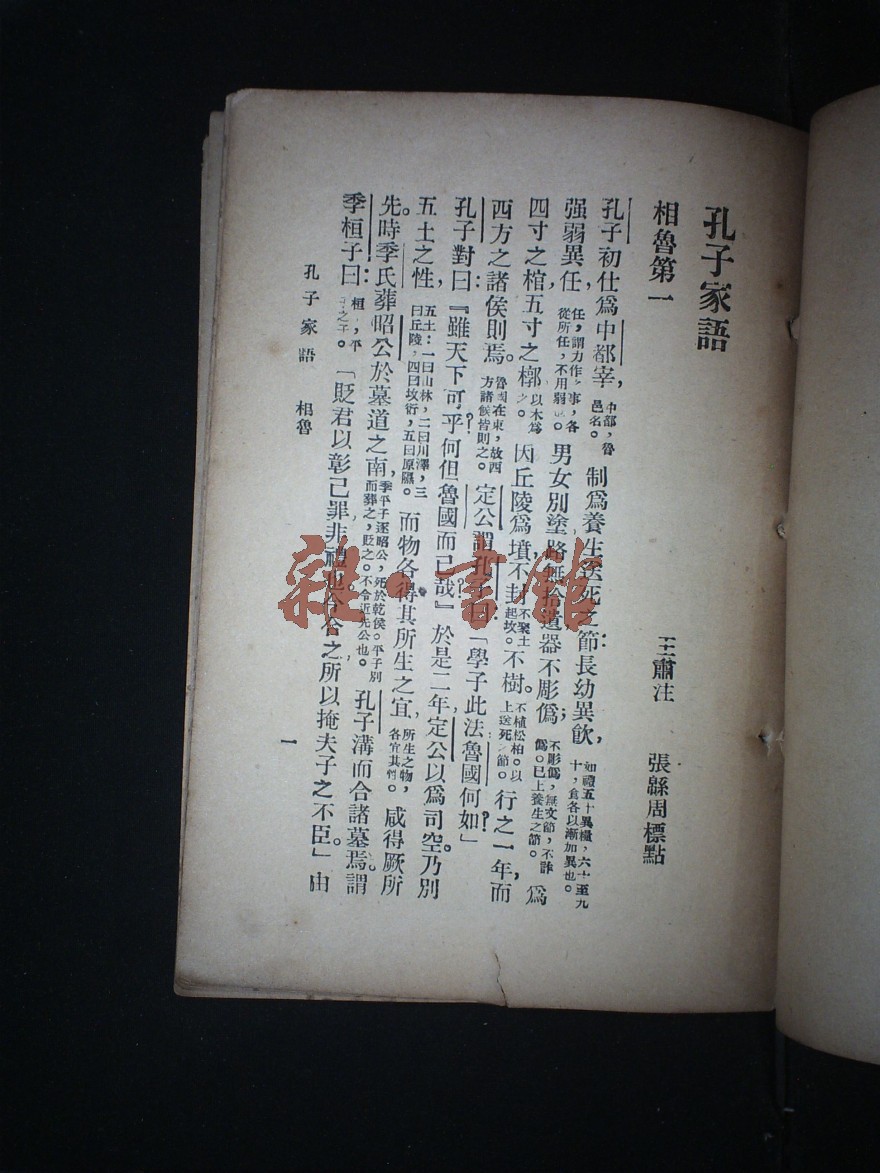 孔子家語
相魯第一
王肅注 張緜周標點
孔子初仕爲中都宰，中都，魯邑名。制爲養生送死之節：長幼異飲，如禮五十異糧，六十至九十，食各以漸加異也。
强弱異任，任，謂力作之事，各從所任，不用弱也。男女別塗，路無拾遺，器不彫僞；不彫僞，無文節，不詐僞。已上養生之節。爲
四寸之棺，五寸之槨，以木爲之。因丘陵爲墳，不封，不聚土起坟。不樹。不植松柏。以上送死之節。行之一年，而
西方之諸侯則焉。魯國在東，故西方諸侯皆則之。定公謂孔子曰：「學子此法魯國何如」？
孔子對曰：『雖天下可乎？何但魯國而已哉』？於是二年，定公以爲司空。乃別
五土之性，五土：一曰山林，二曰川澤，三曰丘陵，四曰坟衍，五曰原隰。而物各得其所生之宜，所生之物，各宜其性。咸得厥所
先。時季氏葬昭公於墓道之南，季平子逐昭公，死於乾侯。平子別而葬之，貶之。不令近先公也。孔子溝而合諸墓焉。謂
季桓子曰：桓，平子之子。「貶君以彰己罪，非禮也。今合之，所以掩夫子之不臣。」由
孔子家語 相魯
一
雜·書館